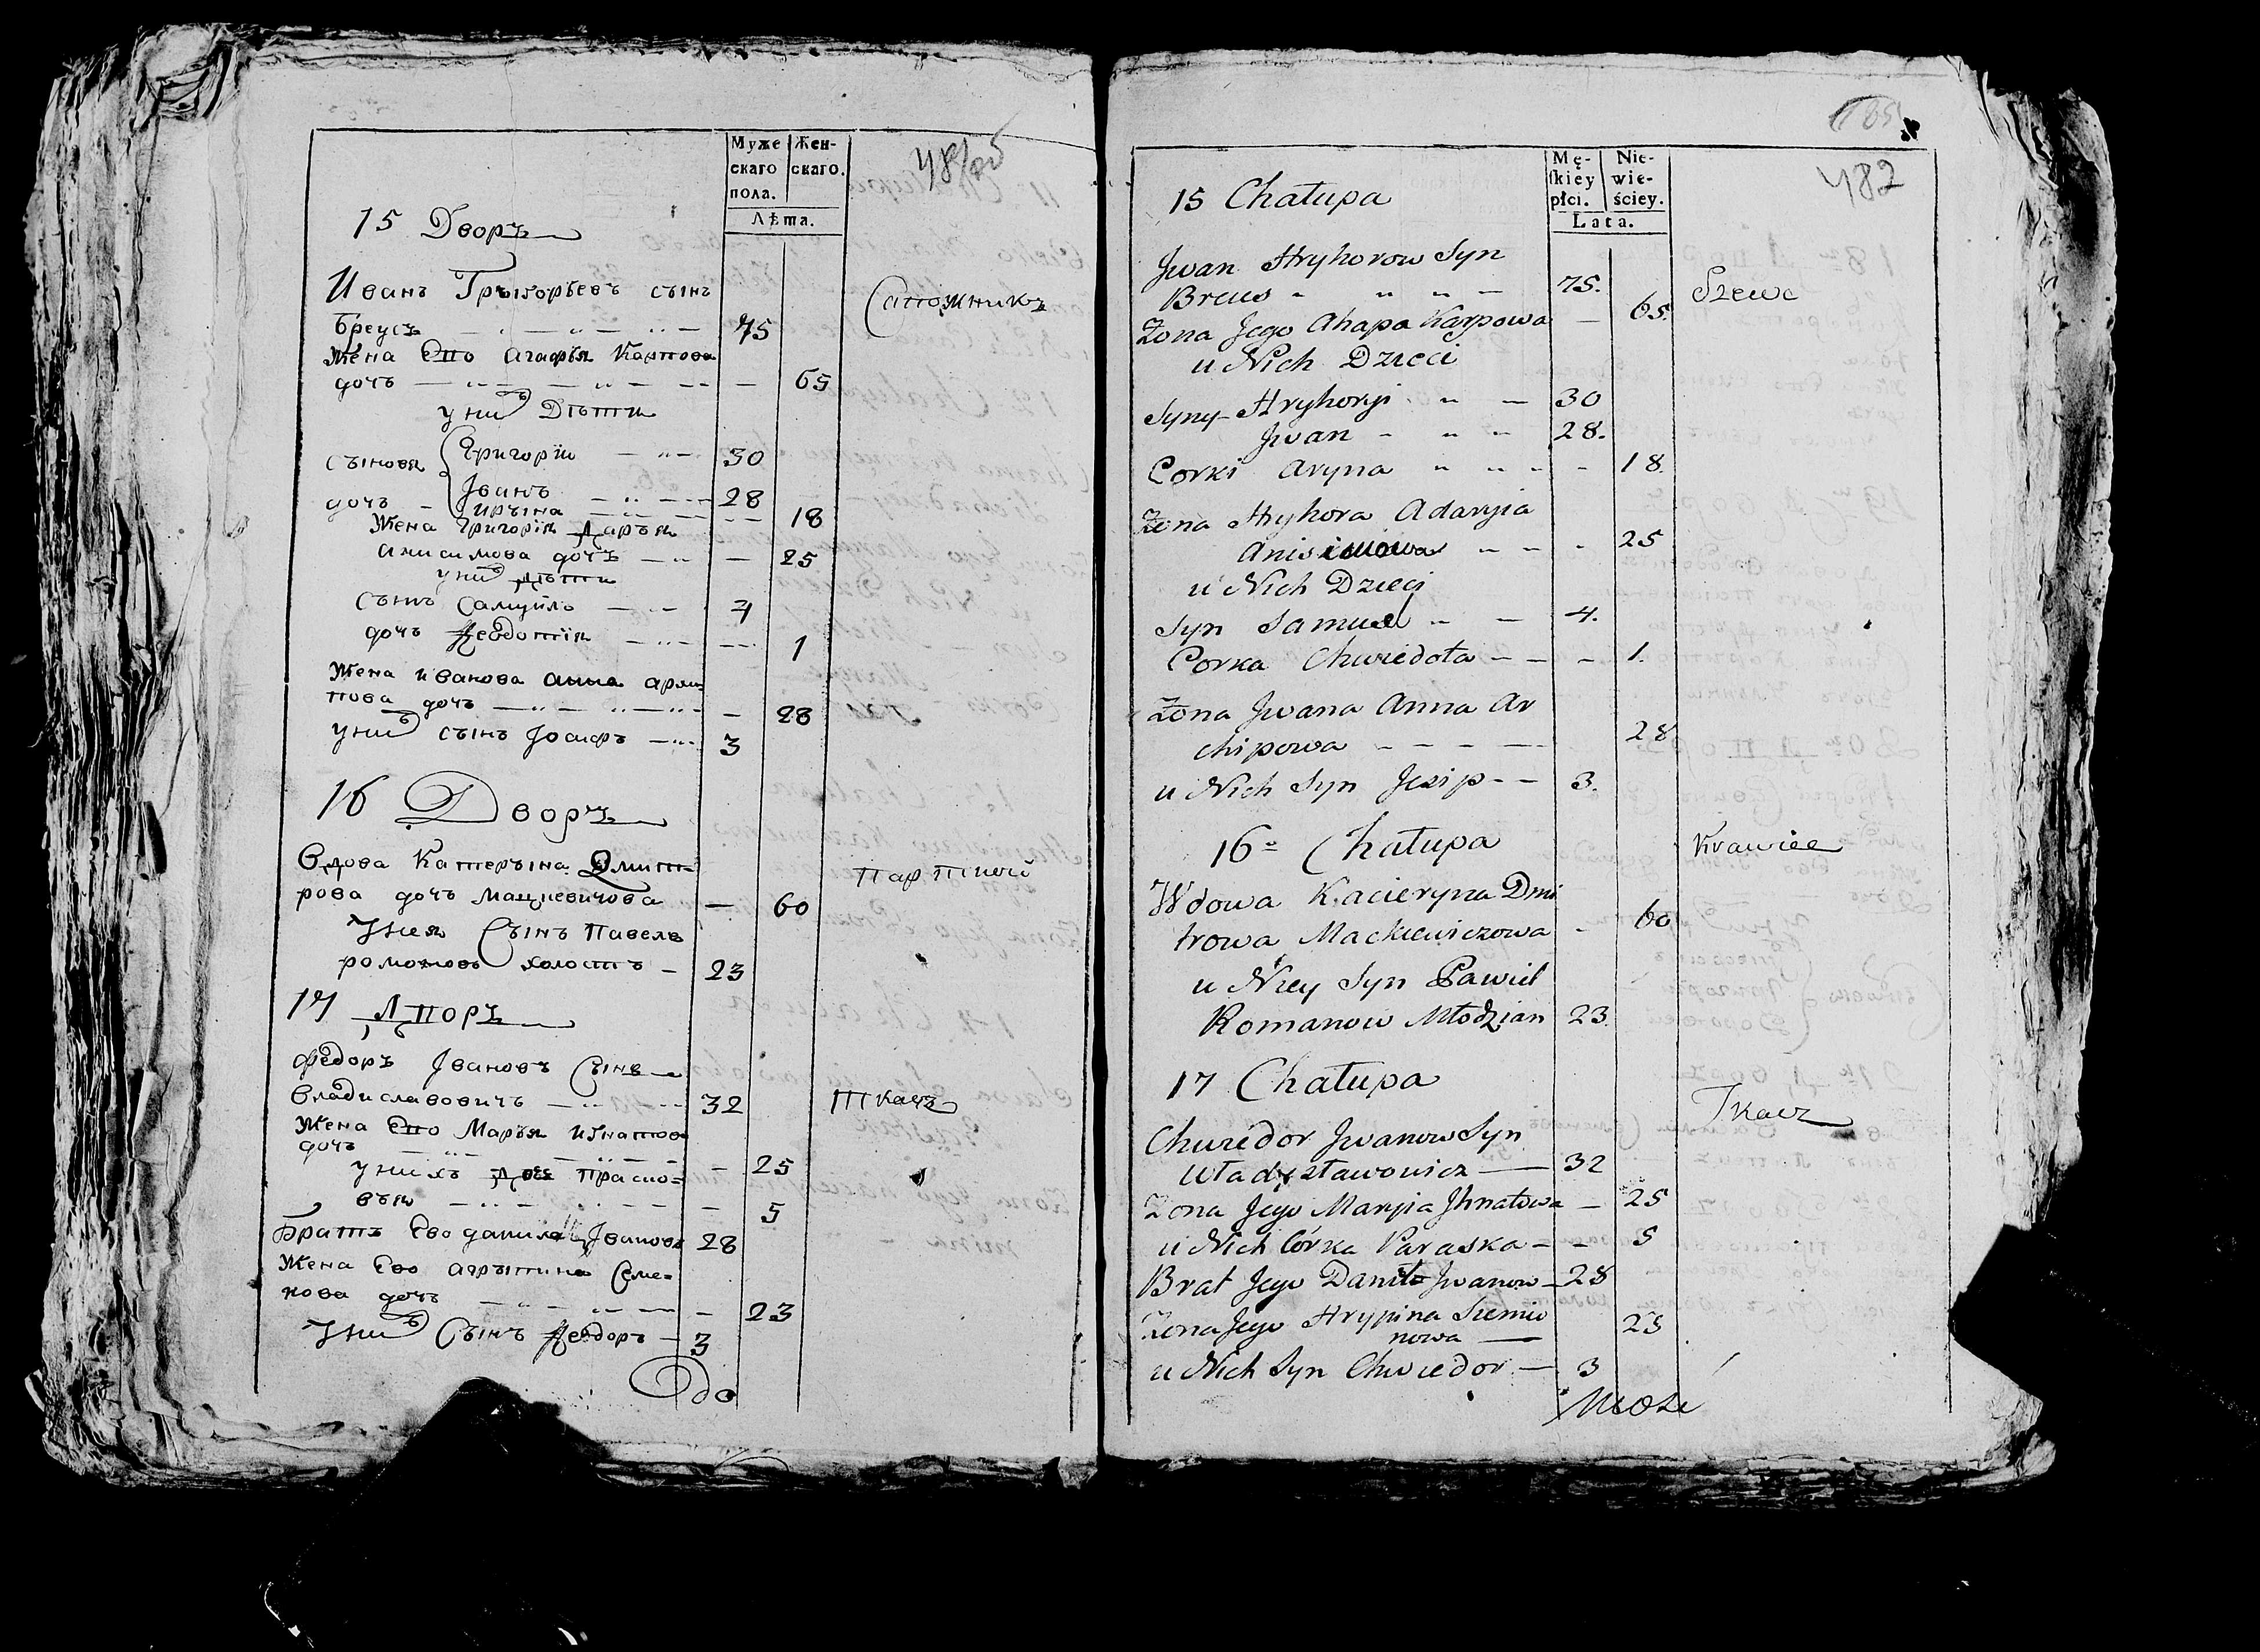 Муже Жен-
скаго скаго.
пола.
Лѣта.
15 Дворъ
Иванъ Григорьевъ сынъ
Бреусъ 75
Сапожникъ
Жена Его Агафья Карпова
дочь — 65
у нихъ Дѣти
сыновя Григорій 30
Іванъ 28
дочь Ирына — 18
Жена Григорія Дарья
Анисимова дочь — 25
у нихъ дѣти
сынъ Самуйло 4
дочь Ѳеодотія — 1
Жена Иванова Анна Архи-
пова дочь — 28
у нихъ сынъ Іосифъ 3
16 Дворъ
Вдова Катерына Дмит-
рова дочь Мацкевичова — 60
Партной
У нея Сынъ Павелъ
Романовъ холостъ 23
17 Дворъ
Федоръ Івановъ Сынъ
Владиславовичъ 32
Ткачъ
Жена Его Марья Игнатова
дочь — 25
у нихъ дочь Праско-
вья — 5
Братъ Ево Данила Івановъ 28
Жена Ево Агрыпина Семе-
нова дочь — 23
У нихъ Сынъ Ѳеодоръ 3
482
Mę- Nie-
skiey wie-
płci. ściey.
Lata.
15 Chałupa
Jwan Hryhorow Syn
Breus 75.
Szewc
Żona Jego Ahapa Karpowa — 65.
u Nich Dzieci
Syny Hryhoryi 30
Jwan 28.
Corki Aryna - 18.
Żona Hryhora Adaryia
Anisimowa - 25
u Nich Dzieci
Syn Samuel 4.
Corka Chwiedota - 1.
Żona Jwana Anna Ar
chipowa 28
u Nich Syn Jezip 3.
16 Chałupa
Krawiec
Wdowa Kacieryna Dmi
trowa Mackiewiczowa - 60
u Niey Syn Pawieł
Romanow Młodzian 23.
17 Chałupa
Tkacz
Chwiedor Jwanow Syn
Władysławowicz 32
Żona Jego Maryia Jhnatowa — 25
u Nich Córka Paraska - 5
Brat Jego Daniło Jwanow 28
Żona Jego Hrypina Siemio
nowa 23
u Nich Syn Chwiedor 3